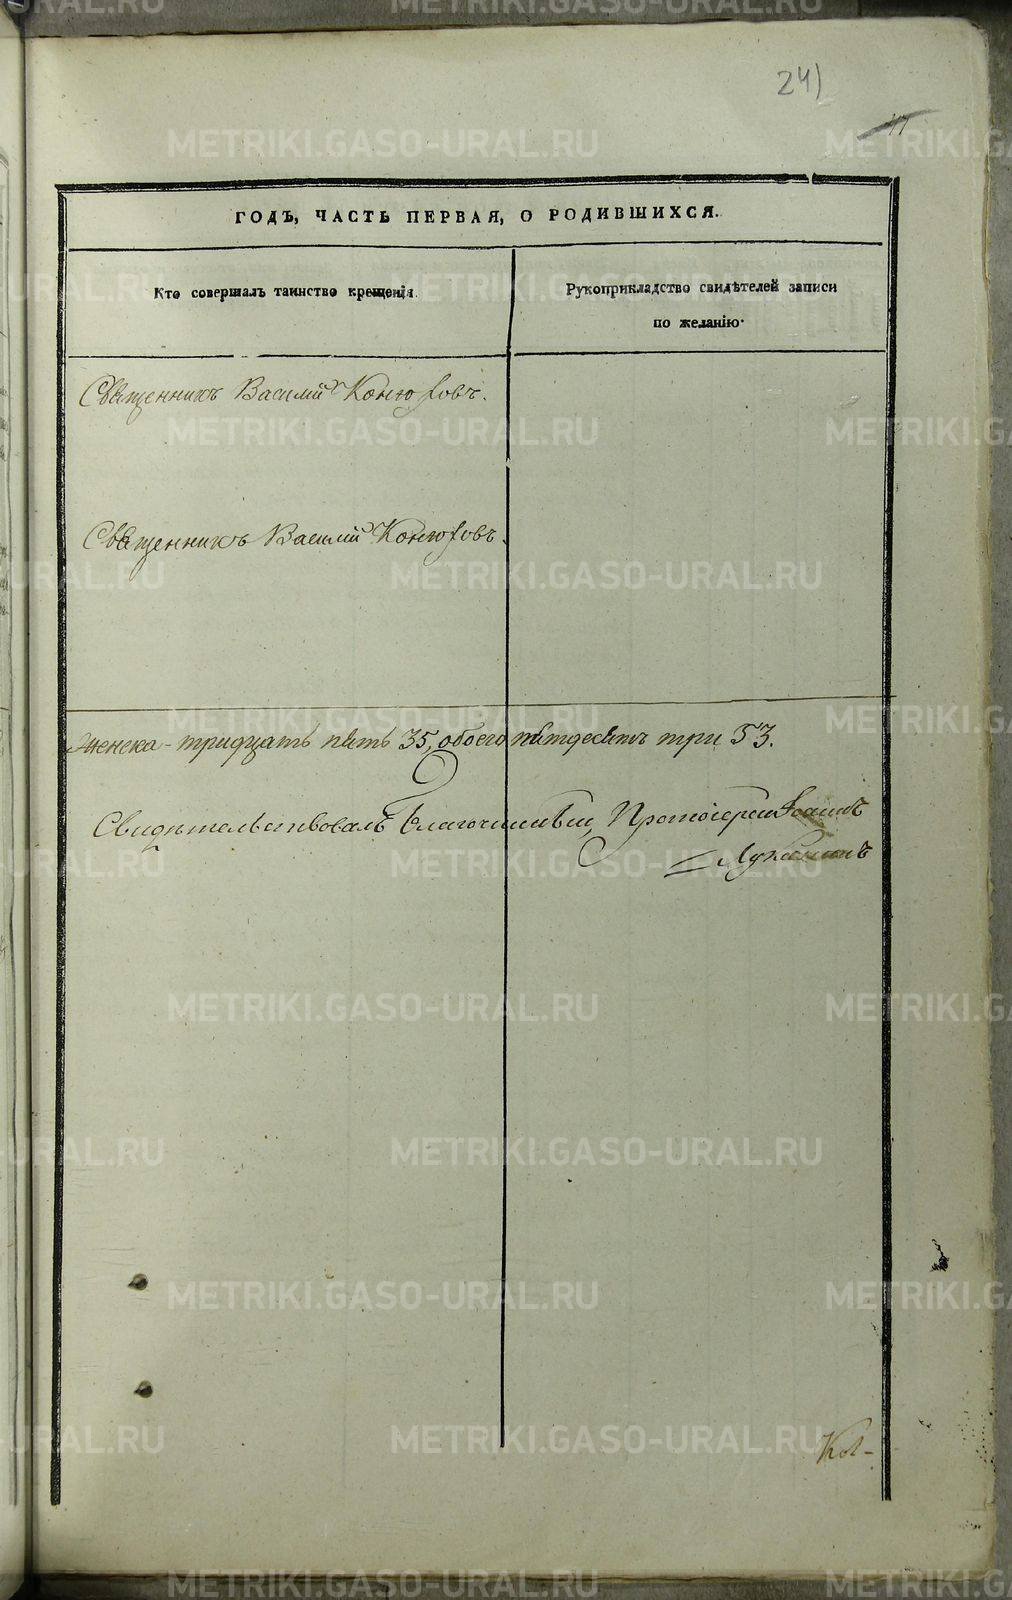 241
47
ГОДЪ, ЧАСТЬ ПЕРВАЯ, О РОДИВШИХСЯ.
Кто совершалъ таинство крещенія.
Рукоприкладство свидѣтелей записи
по желанію.
Священникъ Василій Конюховъ.
Священникъ Василій Конюховъ.
женска - тридцать пять 35, обоего пятдесятъ три 53.
Свидѣтельствовалъ Благочинный, Протоіерей Іоаннъ
Лукининъ
METRIKI.GASO-URAL.RU